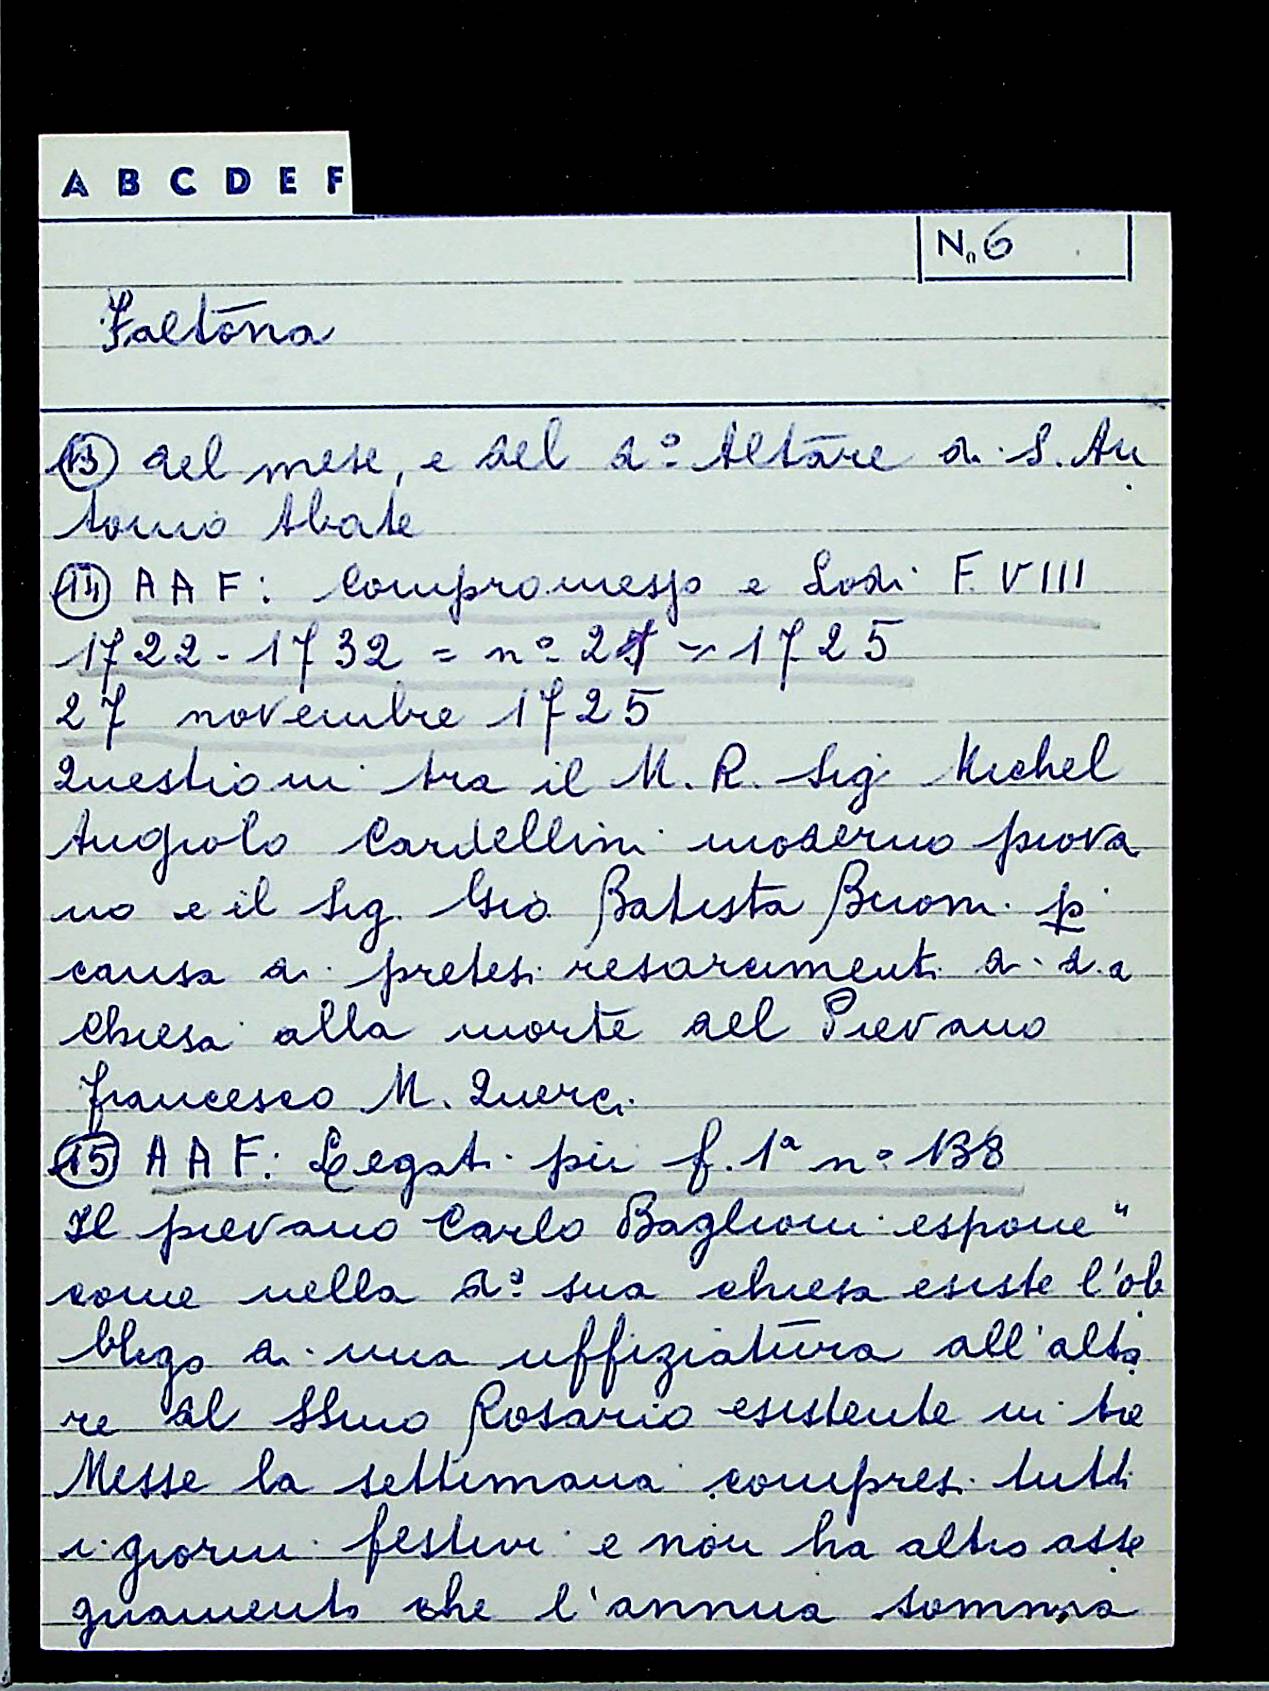 A B C D E F
N. 6
Faltona
13 del mese, e del d.º Altare di S. An
tonio Abate
14 A A F: Compromessi e Lodi F. VIII
1722-1732 = nº 21 ~ 1725
27 novembre 1725
Questioni tra il M. R. Sig Michel
Angiolo Cardellini moderno piova
no e il Sig. Gio Batista Buoni p
causa di pretesi resarcimenti a d.a
Chiesa alla morte del Pievano
Francesco M. Querci.
15 A A F: Legati pii f. 1ª nº 138
Il pievano Carlo Baglioni espone "
come nella dª sua chiesa esiste l'ob
bligo di una uffiziatura all'alta
re del SSmo Rosario esistente in tre
Messe la settimana compresi tutti
i giorni festivi e non ha altro asse
gnamento che l'annua somma